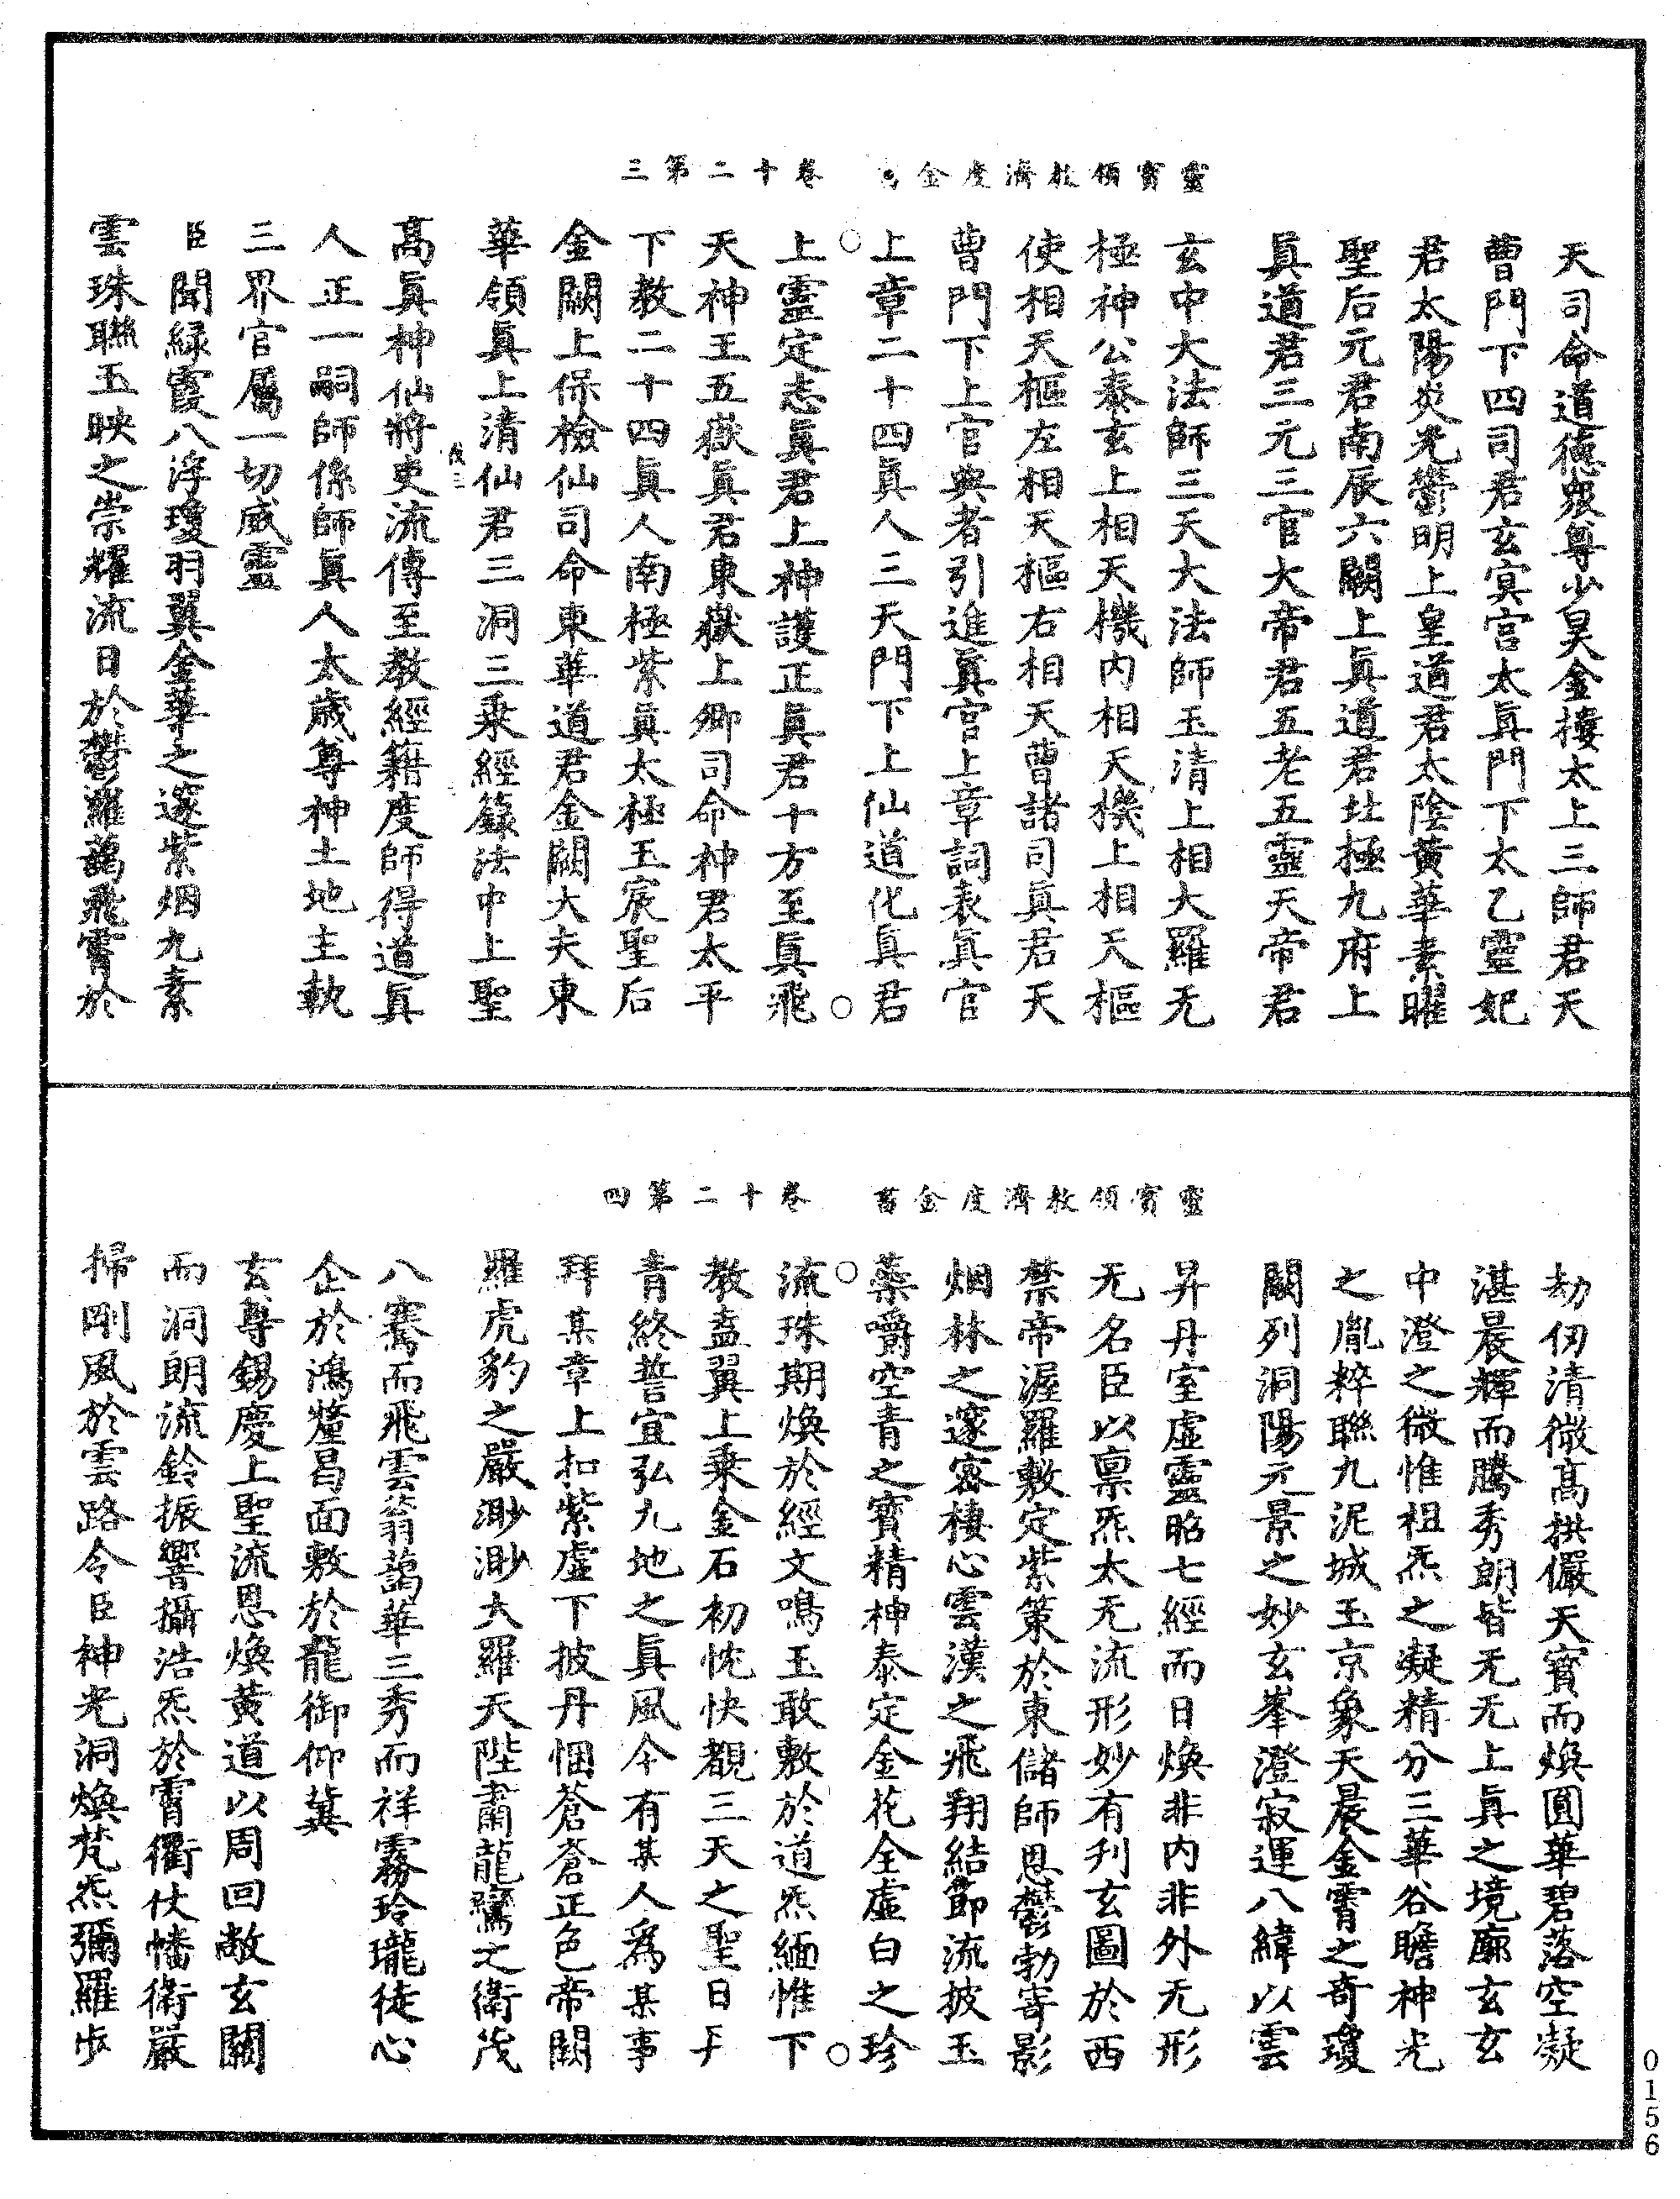 靈寶領教濟度金書 卷十二第三
天司命道德衆尊少昊金樓太上三師君天
曹門下四司君玄冥宫太眞門下太乙靈妃
君太陽炎光鬱明上皇道君太陰黄華素曜
聖后元君南辰六闕上眞道君北極九府上
眞道君三元三官大帝君五老五靈天帝君
玄中大法師三天大法師玉清上相大羅无
極神公泰玄上相天機内相天機上相天樞
使相天樞左相天樞右相天曹諸司眞君天
曹門下上官典者引進眞官上章詞表眞官
上章二十四眞人三天門下上仙道化眞君
上靈定志眞君上神護正眞君十方至眞飛
天神王五嶽眞君東嶽上卿司命神君太平
下教二十四眞人南極紫眞太極玉宸聖后
金闕上保檢仙司命東華道君金闕大夫東
華領眞上清仙君三洞三乗經籙法中上聖
高眞神仙將吏流傳至教經籍度師得道眞
人正一嗣師係師眞人太歲尊神土地主執
三界官屬一切威靈
臣聞緑霞八浮瓊羽翼金華之邃紫烟九素
雲珠聯玉映之崇耀流日於鬱羅藹飛霄於
靈寶領教濟度金書 卷十二第四
劫仞清微高拱儼天寳而煥圓華碧落空凝
湛晨輝而騰秀朗皆无无上眞之境廓玄玄
中澄之微惟祖炁之凝精分三華谷瞻神光
之胤粹聯九泥城玉京象天晨金霄之奇瓊
闕列洞陽元景之妙玄峯澄寂運八緯以雲
昇丹室虚靈昭七經而日煥非内非外无形
无名臣以禀炁太无流形妙有刋玄圖於西
禁帝渥羅敷定紫策於東儲師恩鬱勃寄影
烟林之邃密棲心雲漢之飛翔結節流披玉
蘂嚼空青之寳精神泰定金花全虚白之珍
流珠期煥於經文鳴玉敢敷於道炁緬惟下
教盍翼上乗金石初忱快覩三天之聖日
青終誓宜弘九地之眞風今有某人爲某事
拜某章上扣紫虚下披丹悃蒼蒼正色帝闕
羅虎豹之嚴渺渺大羅天陛肅龍鸞之衛茂
八騫而飛雲蓊藹華三秀而祥霧玲瓏徒心
企於鴻釐昌面敷於龍御仰冀
玄尊錫慶上聖流恩煥黄道以周回敞玄關
而洞朗流鈴振響攝浩炁於霄衢仗幡衛嚴
掃剛風於雲路令臣神光洞煥梵炁彌羅步
0156